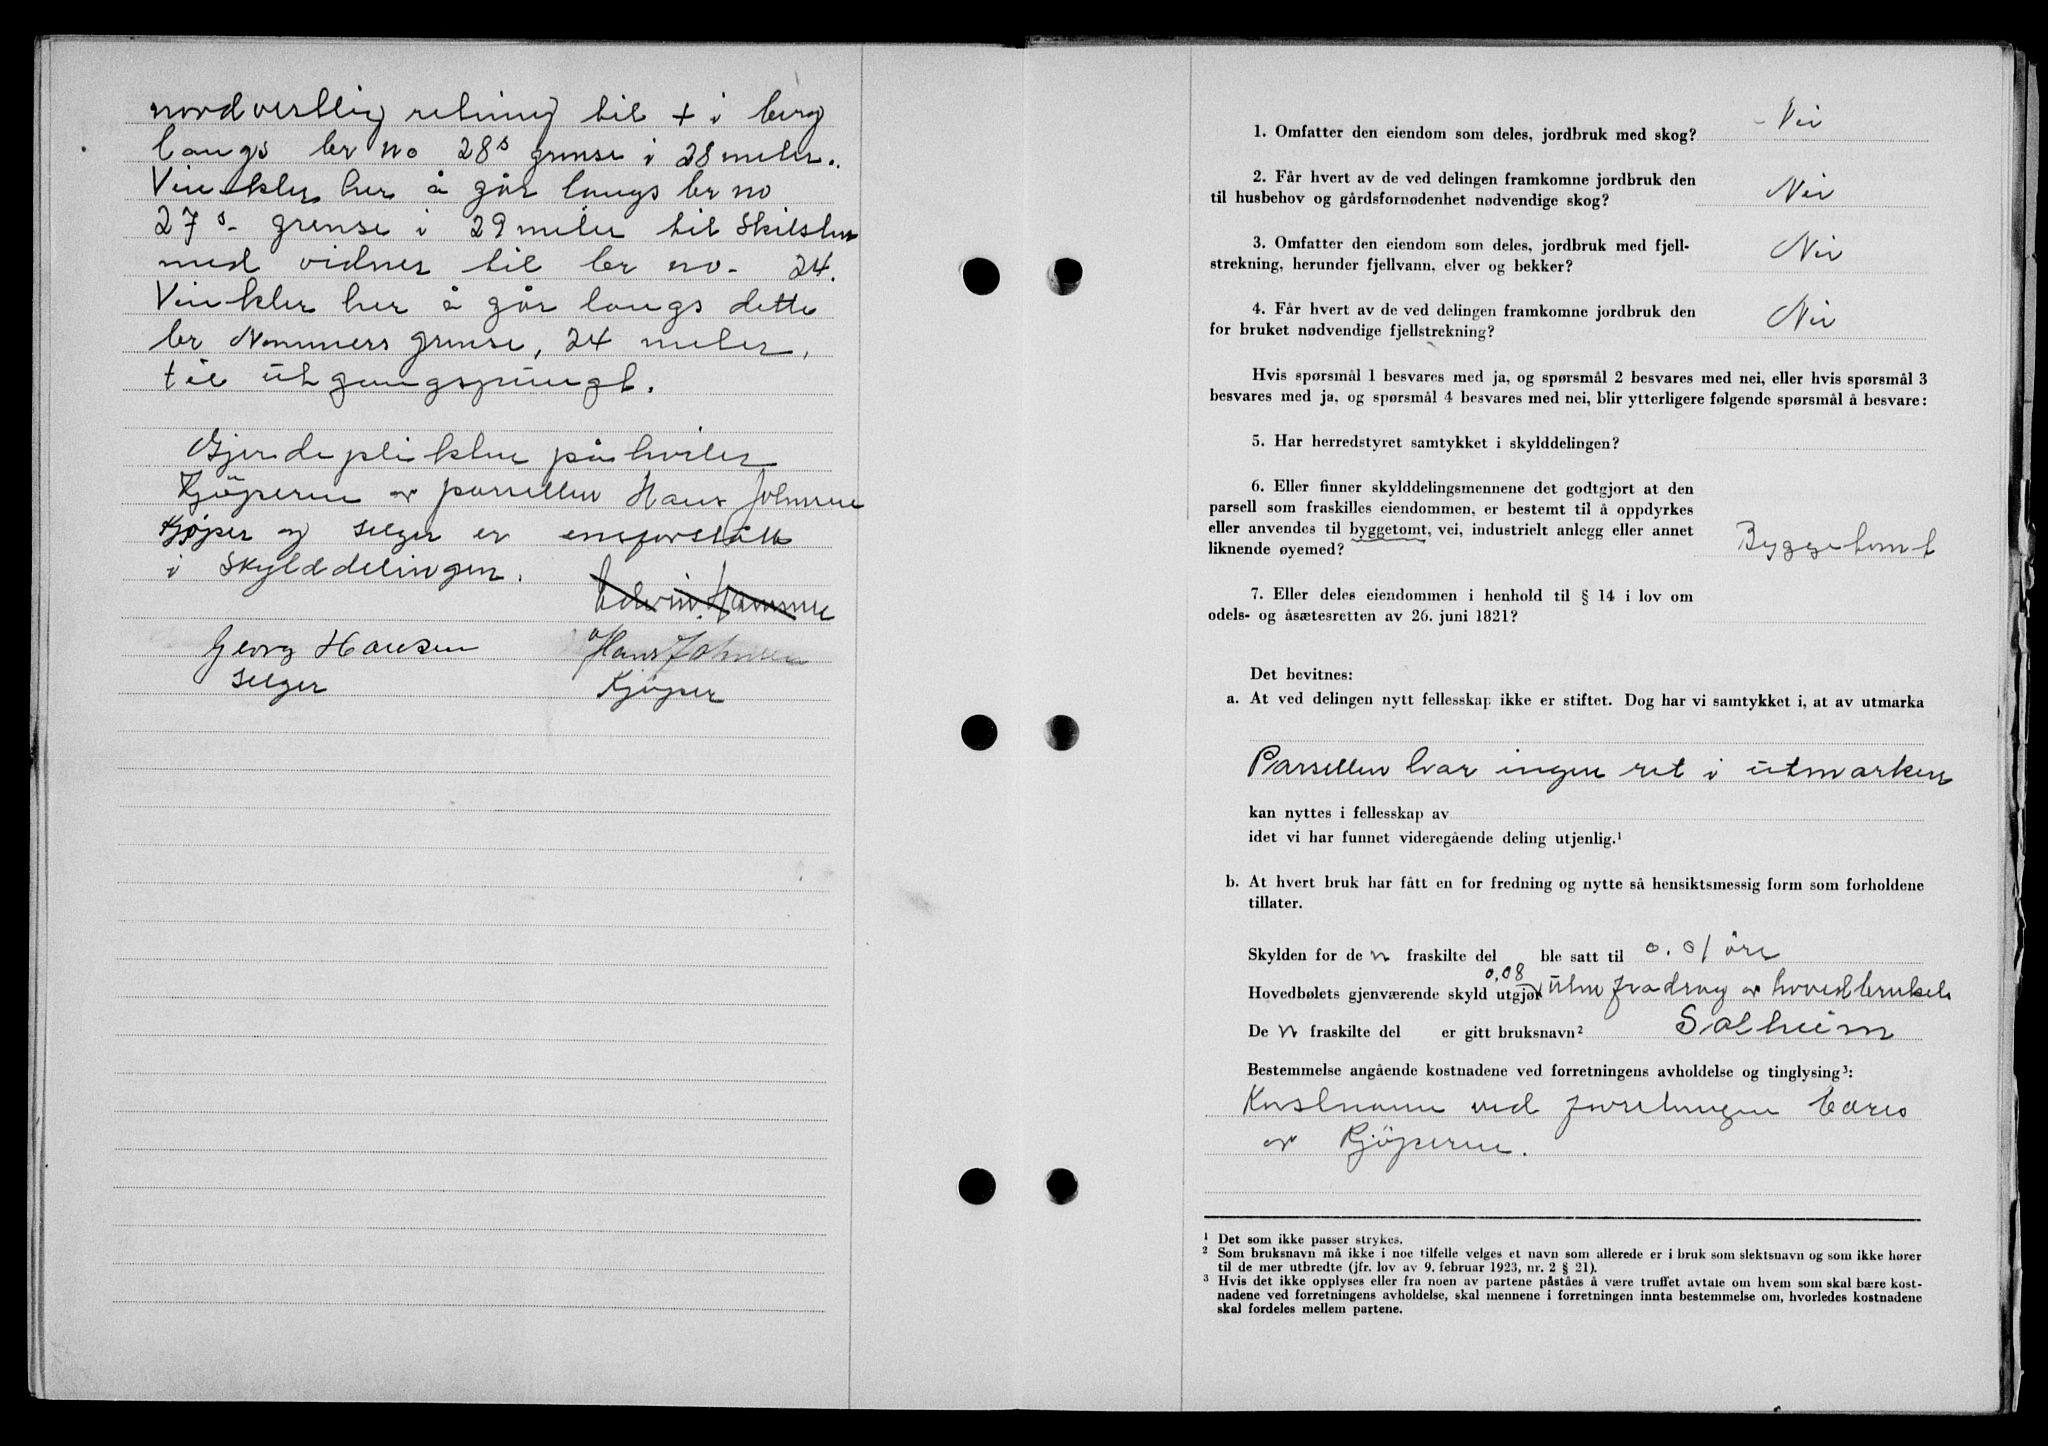 nordvestlig retning til + i berg
langs br no 28s grense i 28 meter.
Vinkler her å går langs br no
27s- grense i 29 meter til Skilsten
med vidner til br no- 24.
Vinkler her å går langs dette
br Nommers grense, 24 meter,
til utgangspungt.
Gjerdeplikten påhviler
Kjöperen av parsellen Hans Johnsen
Kjøper og selger er enforstått
i Skylddelingen.
Edvin Hansen
Georg Hansen Hans Johnsen
Selger Kjøper
Nei
1. Omfatter den eiendom som deles, jordbruk med skog?
2. Får hvert av de ved delingen framkomne jordbruk den
til husbehov og gårdsfornødenhet nødvendige skog? Nei
3. Omfatter den eiendom som deles, jordbruk med fjell-
strekning, herunder fjellvann, elver og bekker? Nei
4. Får hvert av de ved delingen framkomne jordbruk den
for bruket nødvendige fjellstrekning? Nei
Hvis spørsmål 1 besvares med ja, og spørsmål 2 besvares med nei, eller hvis spørsmål 3
besvares med ja, og spørsmål 4 besvares med nei, blir ytterligere følgende spørsmål å besvare:
5. Har herredstyret samtykket i skylddelingen?
6. Eller finner skylddelingsmennene det godtgjort at den
parsell som fraskilles eiendommen, er bestemt til å oppdyrkes
eller anvendes til byggetomt, vei, industrielt anlegg eller annet
liknende øyemed? Byggetomt
7. Eller deles eiendommen i henhold til § 14 i lov om
odels- og åsætesretten av 26. juni 1821?
Det bevitnes:
a. At ved delingen nytt fellesskap ikke er stiftet. Dog har vi samtykket i, at av utmarka
Parsellen har ingen ret i utmarken
kan nyttes i fellesskap av
idet vi har funnet videregående deling utjenlig.¹
b. At hvert bruk har fått en for fredning og nytte så hensiktsmessig form som forholdene
tillater.
Skylden for den fraskilte del ble satt til 0.01 öre
0,08
Hovedbølets gjenværende skyld utgjør uten fradrag av hovedbruket
Den fraskilte del er gitt bruksnavn² Solheim
Bestemmelse angående kostnadene ved forretningens avholdelse og tinglysing³:
Kostnane ved forretningen bæres
av Kjöperen.
¹ Det som ikke passer strykes.
² Som bruksnavn må ikke i noe tilfelle velges et navn som allerede er i bruk som slektsnavn og som ikke hører
til de mer utbredte (jfr. lov av 9. februar 1923, nr. 2 § 21).
³ Hvis det ikke opplyses eller fra noen av partene påstås å være truffet avtale om hvem som skal bære kost-
nadene ved forretningens avholdelse, skal mennene i forretningen innta bestemmelse om, hvorledes kostnadene
skal fordeles mellem partene.